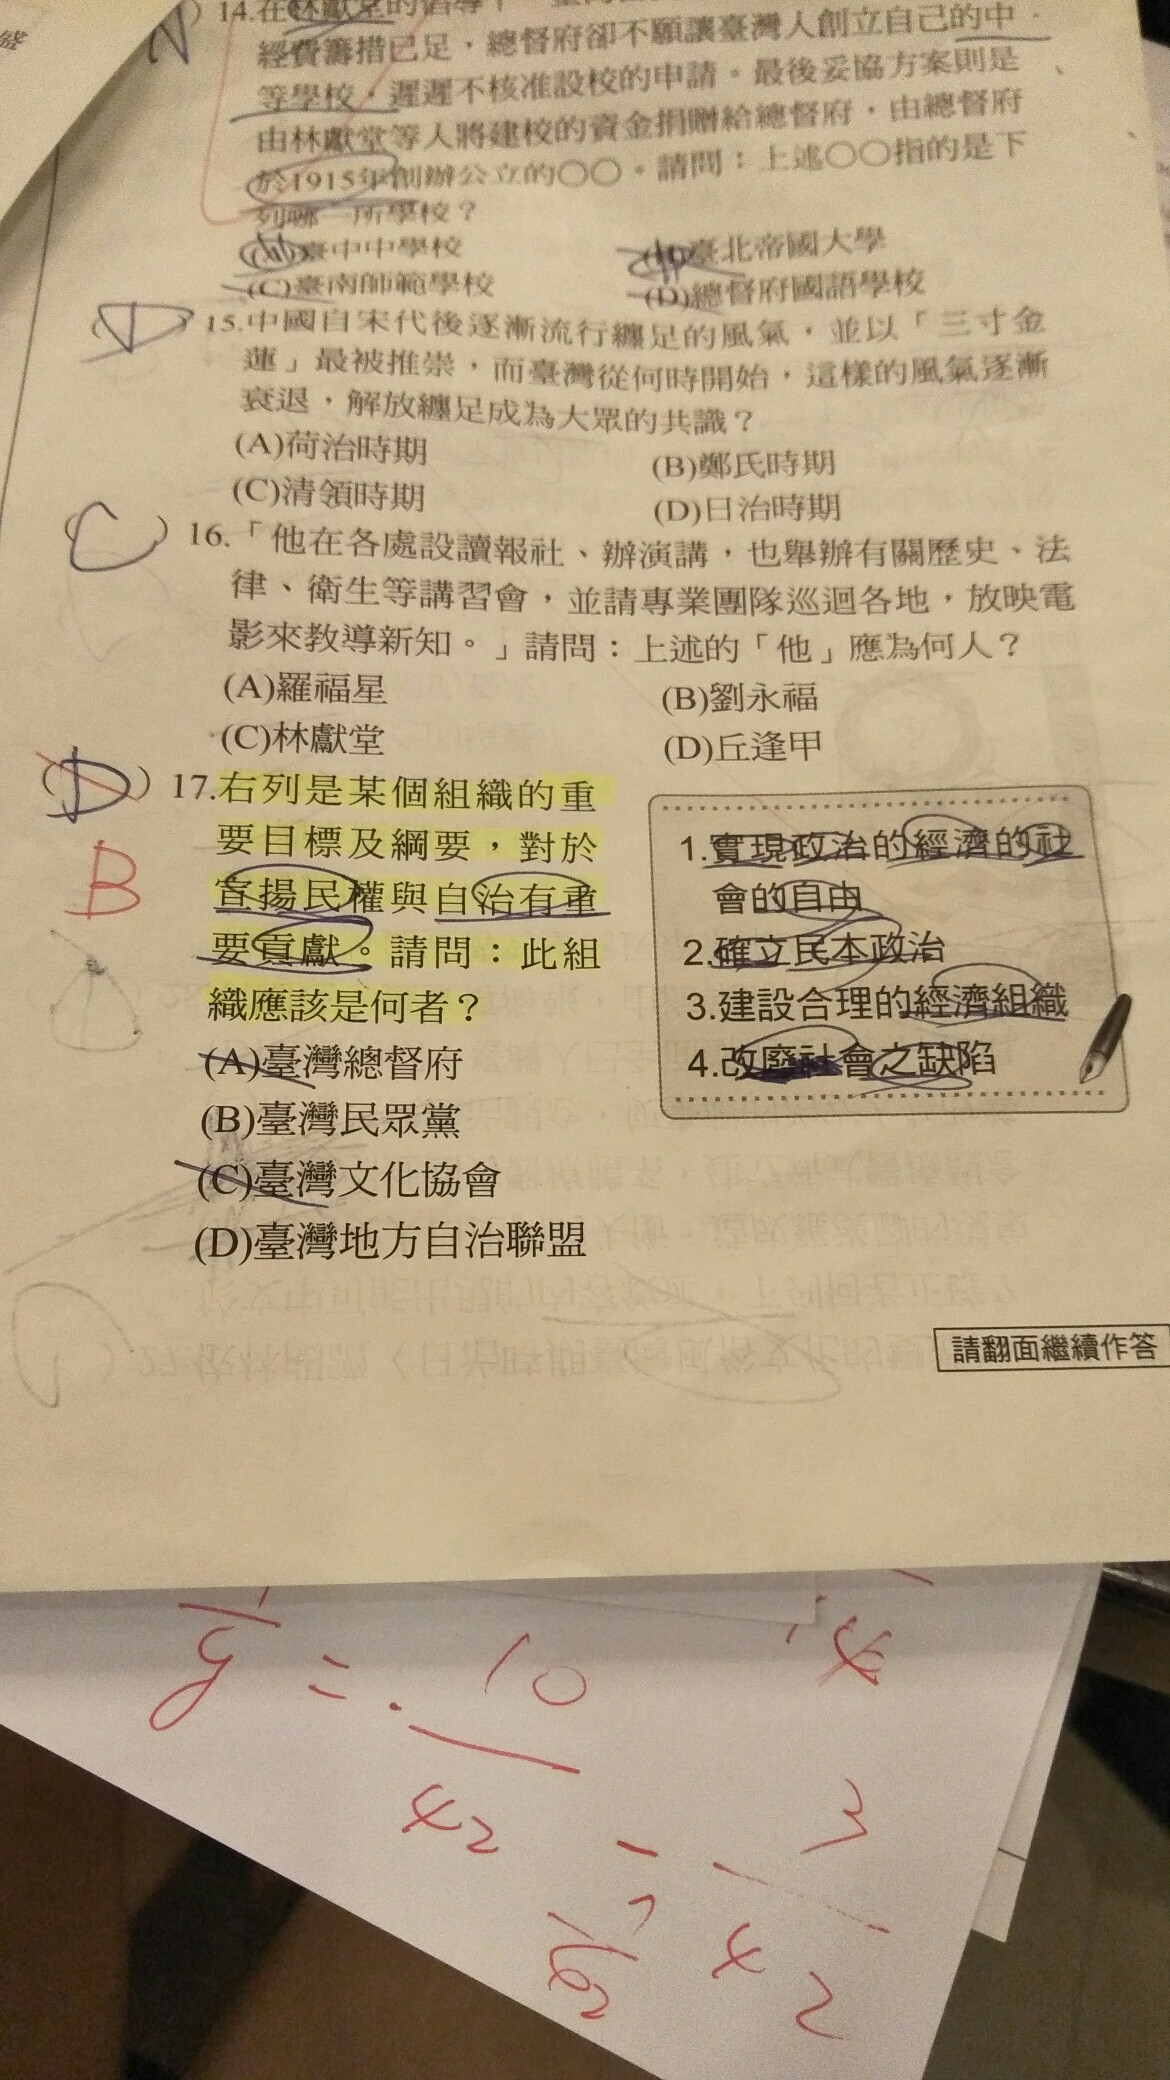 14.在林獻堂的倡導下
經費籌措已足，總督府卻不願讓臺灣人創立自己的中
等學校，遲遲不核准設校的申請。最後妥協方案則是
由林獻堂等人將建校的資金捐贈給總督府，由總督府
於1915年創辦公立的〇〇。請問：上述〇〇指的是下
列哪一所學校？
臺中中學校 臺北帝國大學
(C)臺南師範學校 (D)總督府國語學校
(D) 15.中國自宋代後逐漸流行纏足的風氣，並以「三寸金
蓮」最被推崇，而臺灣從何時開始，這樣的風氣逐漸
衰退，解放纏足成為大眾的共識？
(A)荷治時期 (B)鄭氏時期
(C)清領時期 (D)日治時期
(C) 16.「他在各處設讀報社、辦演講，也舉辦有關歷史、法
律、衛生等講習會，並請專業團隊巡迴各地，放映電
影來教導新知。」請問：上述的「他」應為何人？
(A)羅福星 (B)劉永福
(C)林獻堂 (D)丘逢甲
(D) 17.右列是某個組織的重
要目標及綱要，對於
B
宣揚民權與自治有重
要貢獻。請問：此組
織應該是何者？
(A)臺灣總督府
(B)臺灣民眾黨
(C)臺灣文化協會
(D)臺灣地方自治聯盟
1.實現政治的經濟的社
會的自由
2.確立民本政治
3.建設合理的經濟組織
4.改廢社會之缺陷
請翻面繼續作答
10
42
4
3
42